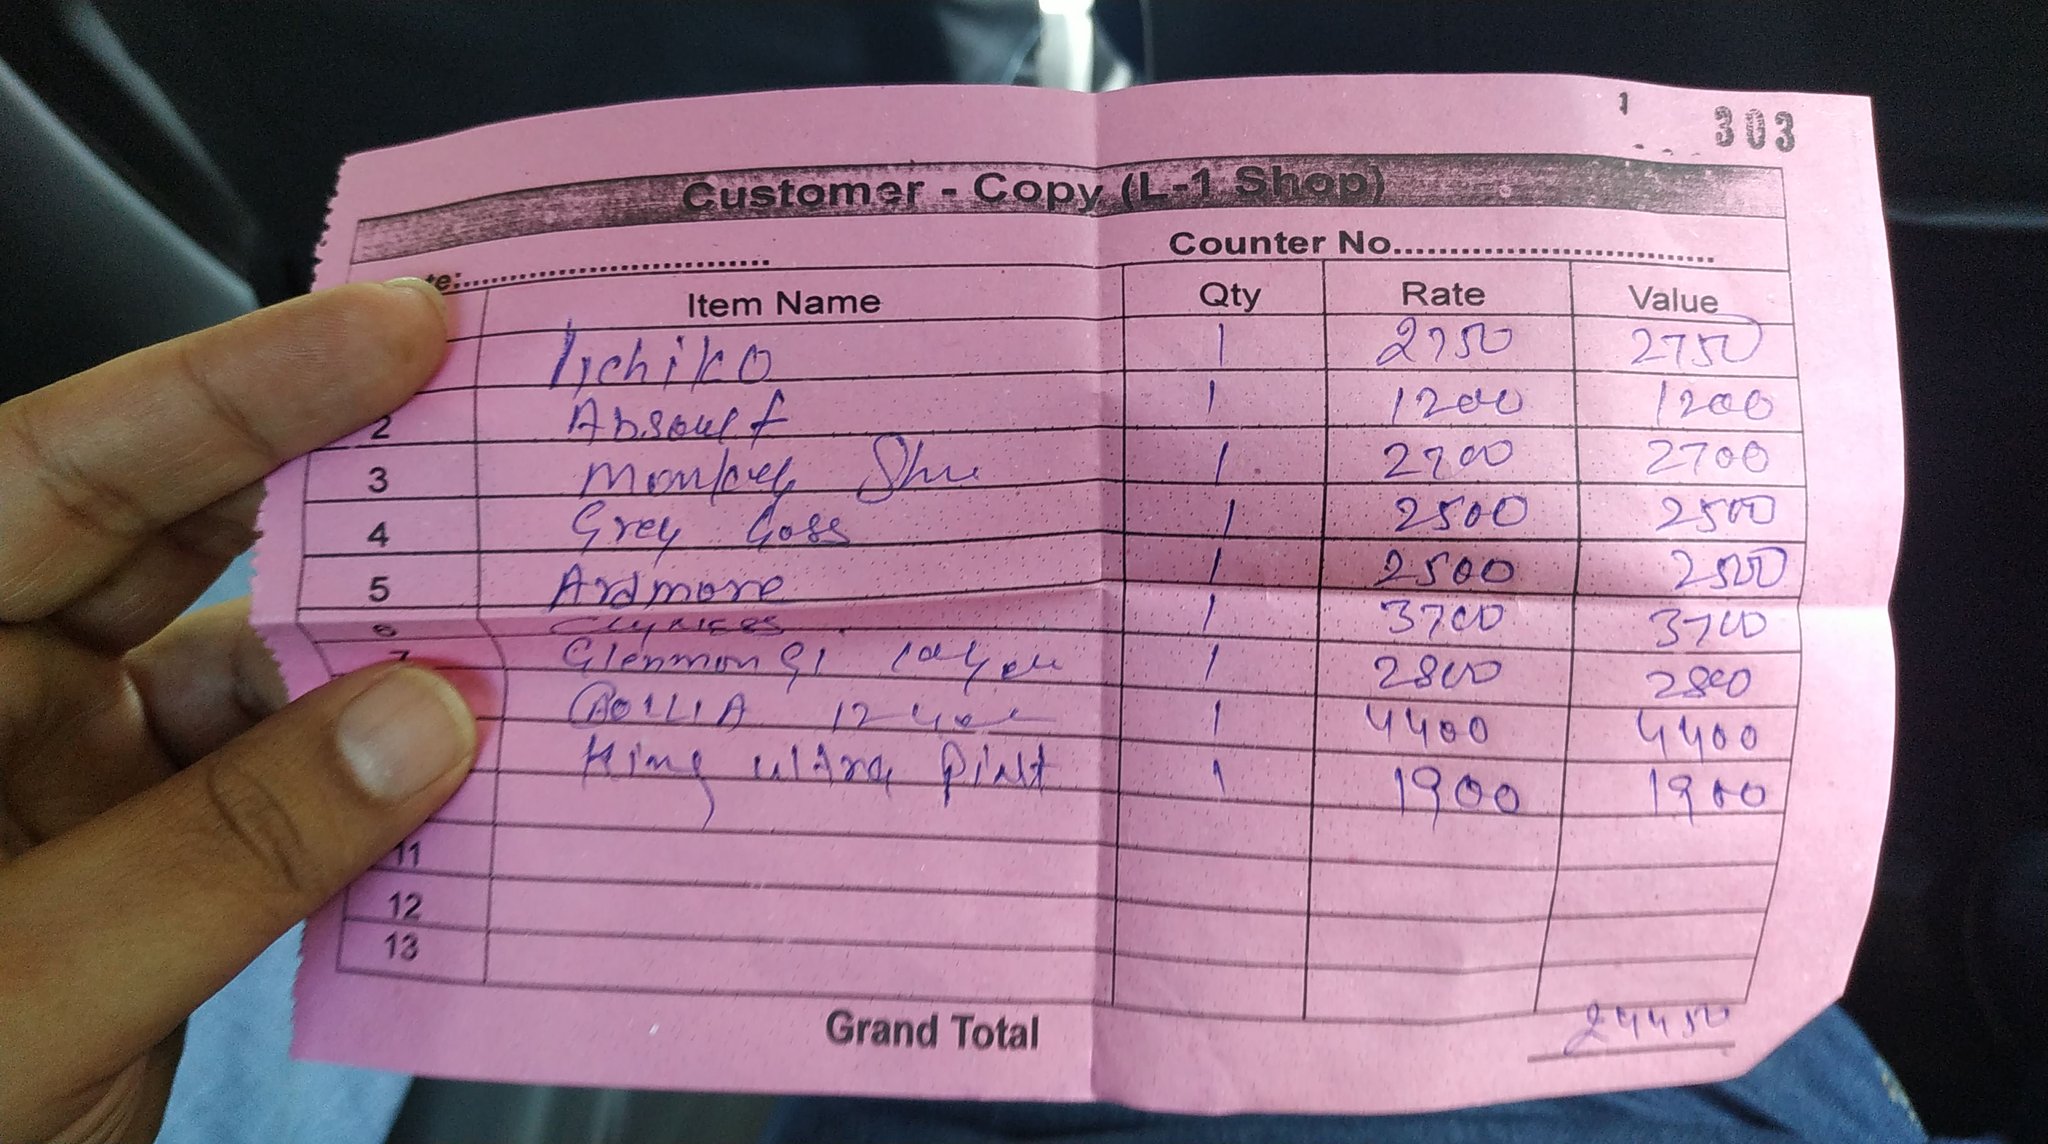 1 303
Customer - Copy (L-1 Shop)
te:.............................. Counter No..............................
Item Name Qty Rate Value
Iichiko 1 2750 2750
2 Absoult 1 1200 1200
3 Monkey Shu 1 2700 2700
4 Grey Goss 1 2500 2500
5 Ardmore 1 2500 2500
6 1 3700 3700
7 Glenmongi 1 2800 2800
12 1 4400 4400
King ultra 1 1900 1900
11
12
13
Grand Total 24450